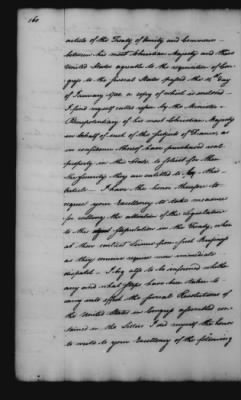 160
article of the Treaty of Amity and Commerce
between his most Christian Majesty and these
United States agreable to the requisition of Con-
gress to the several States passed the 14th day
of January 1780. a copy of which is enclosed —
I find myself called upon by the Minister
Plenipotentiary of his most Christian Majesty
in behalf of such of the subjects of France, as
in confidence thereof have purchased real
property in this State to plead for them
the security they are entitled to by this
Article — I have the honor therefore to
request your Excellency to take measures
for calling the attention of the Legislature
to the stipulation in the Treaty, when
at their session
as they conceive requires more immediate
dispatch — I beg also to be informed whether
any and what steps have been taken to
carry into effect the several Resolutions of
the United States in Congress assembled con-
tained in the Letter I did myself the honor
to write to your Excellency of the following